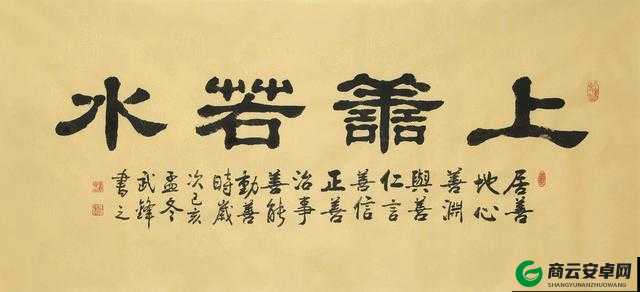 上善若水
居善
地心
善淵
與善
仁言
善信
正善
治事
善能
動善
時歲
次己亥
孟冬
武鋒
書之
商云安卓网
SHANGYUNANZHUOWANG